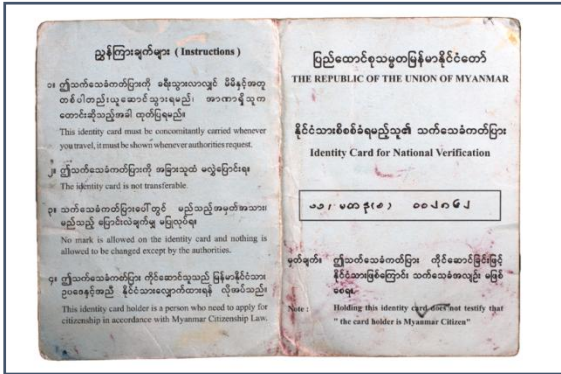 ညွှန်ကြားချက်များ ( Instructions )
၁။ ဤသက်သေခံကတ်ပြားကို ခရီးသွားလာလျှင် မိမိနှင့်အတူ
တစ်ပါတည်းယူဆောင်သွားရမည်၊ အာဏာရှိသူက
တောင်းဆိုသည့်အခါ ထုတ်ပြရမည်။
This identity card must be concomitantly carried whenever
you travel, it must be shown whenever authorities request.
၂။ ဤသက်သေခံကတ်ပြားကို အခြားသူထံ မလွှဲပြောင်းရ။
The identity card is not transferable.
၃။ သက်သေခံကတ်ပြားပေါ်တွင် မည်သည့်အမှတ်အသား၊
မည်သည့် ပြောင်းလဲချက်မျှ မပြုလုပ်ရ။
No mark is allowed on the identity card and nothing is
allowed to be changed except by the authorities.
၄။ ဤသက်သေခံကတ်ပြား ကိုင်ဆောင်သူသည် မြန်မာနိုင်ငံသား
ဥပဒေနှင့်အညီ နိုင်ငံသားလျှောက်ထားရန် လိုအပ်သည်။
This identity card holder is a person who need to apply for
citizenship in accordance with Myanmar Citizenship Law.
ပြည်ထောင်စုသမ္မတမြန်မာနိုင်ငံတော်
THE REPUBLIC OF THE UNION OF MYANMAR
နိုင်ငံသားစိစစ်ခံရမည့်သူ၏ သက်သေခံကတ်ပြား
Identity Card for National Verification
မှတ်ချက်။ ဤသက်သေခံကတ်ပြား ကိုင်ဆောင်ခြင်းဖြင့်
နိုင်ငံသားဖြစ်ကြောင်း သက်သေခံအထည်း မဖြစ်
စေရ။
Note : Holding this identity card does not testify that
" the card holder is Myanmar Citizen"